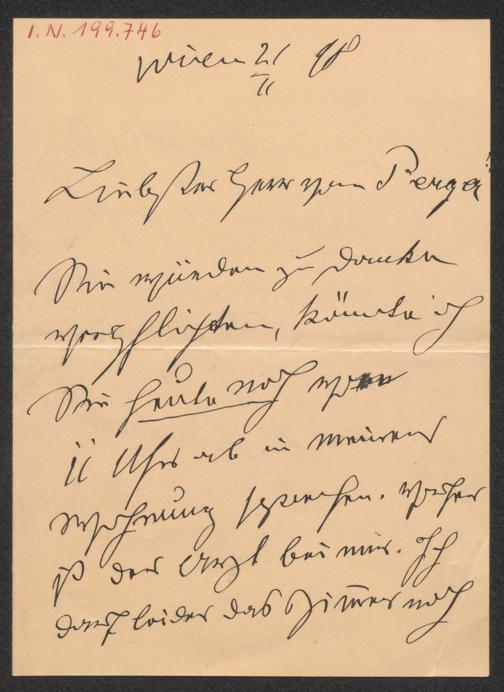 I. N. 199.746
Wien 21/II 98
Liebster Herr von Perger!
Sie würden zu Danke
verpflichten, könnte ich
Sie heute noch von
11 Uhr ab in meiner
Wohnung sprechen. Vorher
ist der Arzt bei mir. Ich
darf leider das Zimmer noch